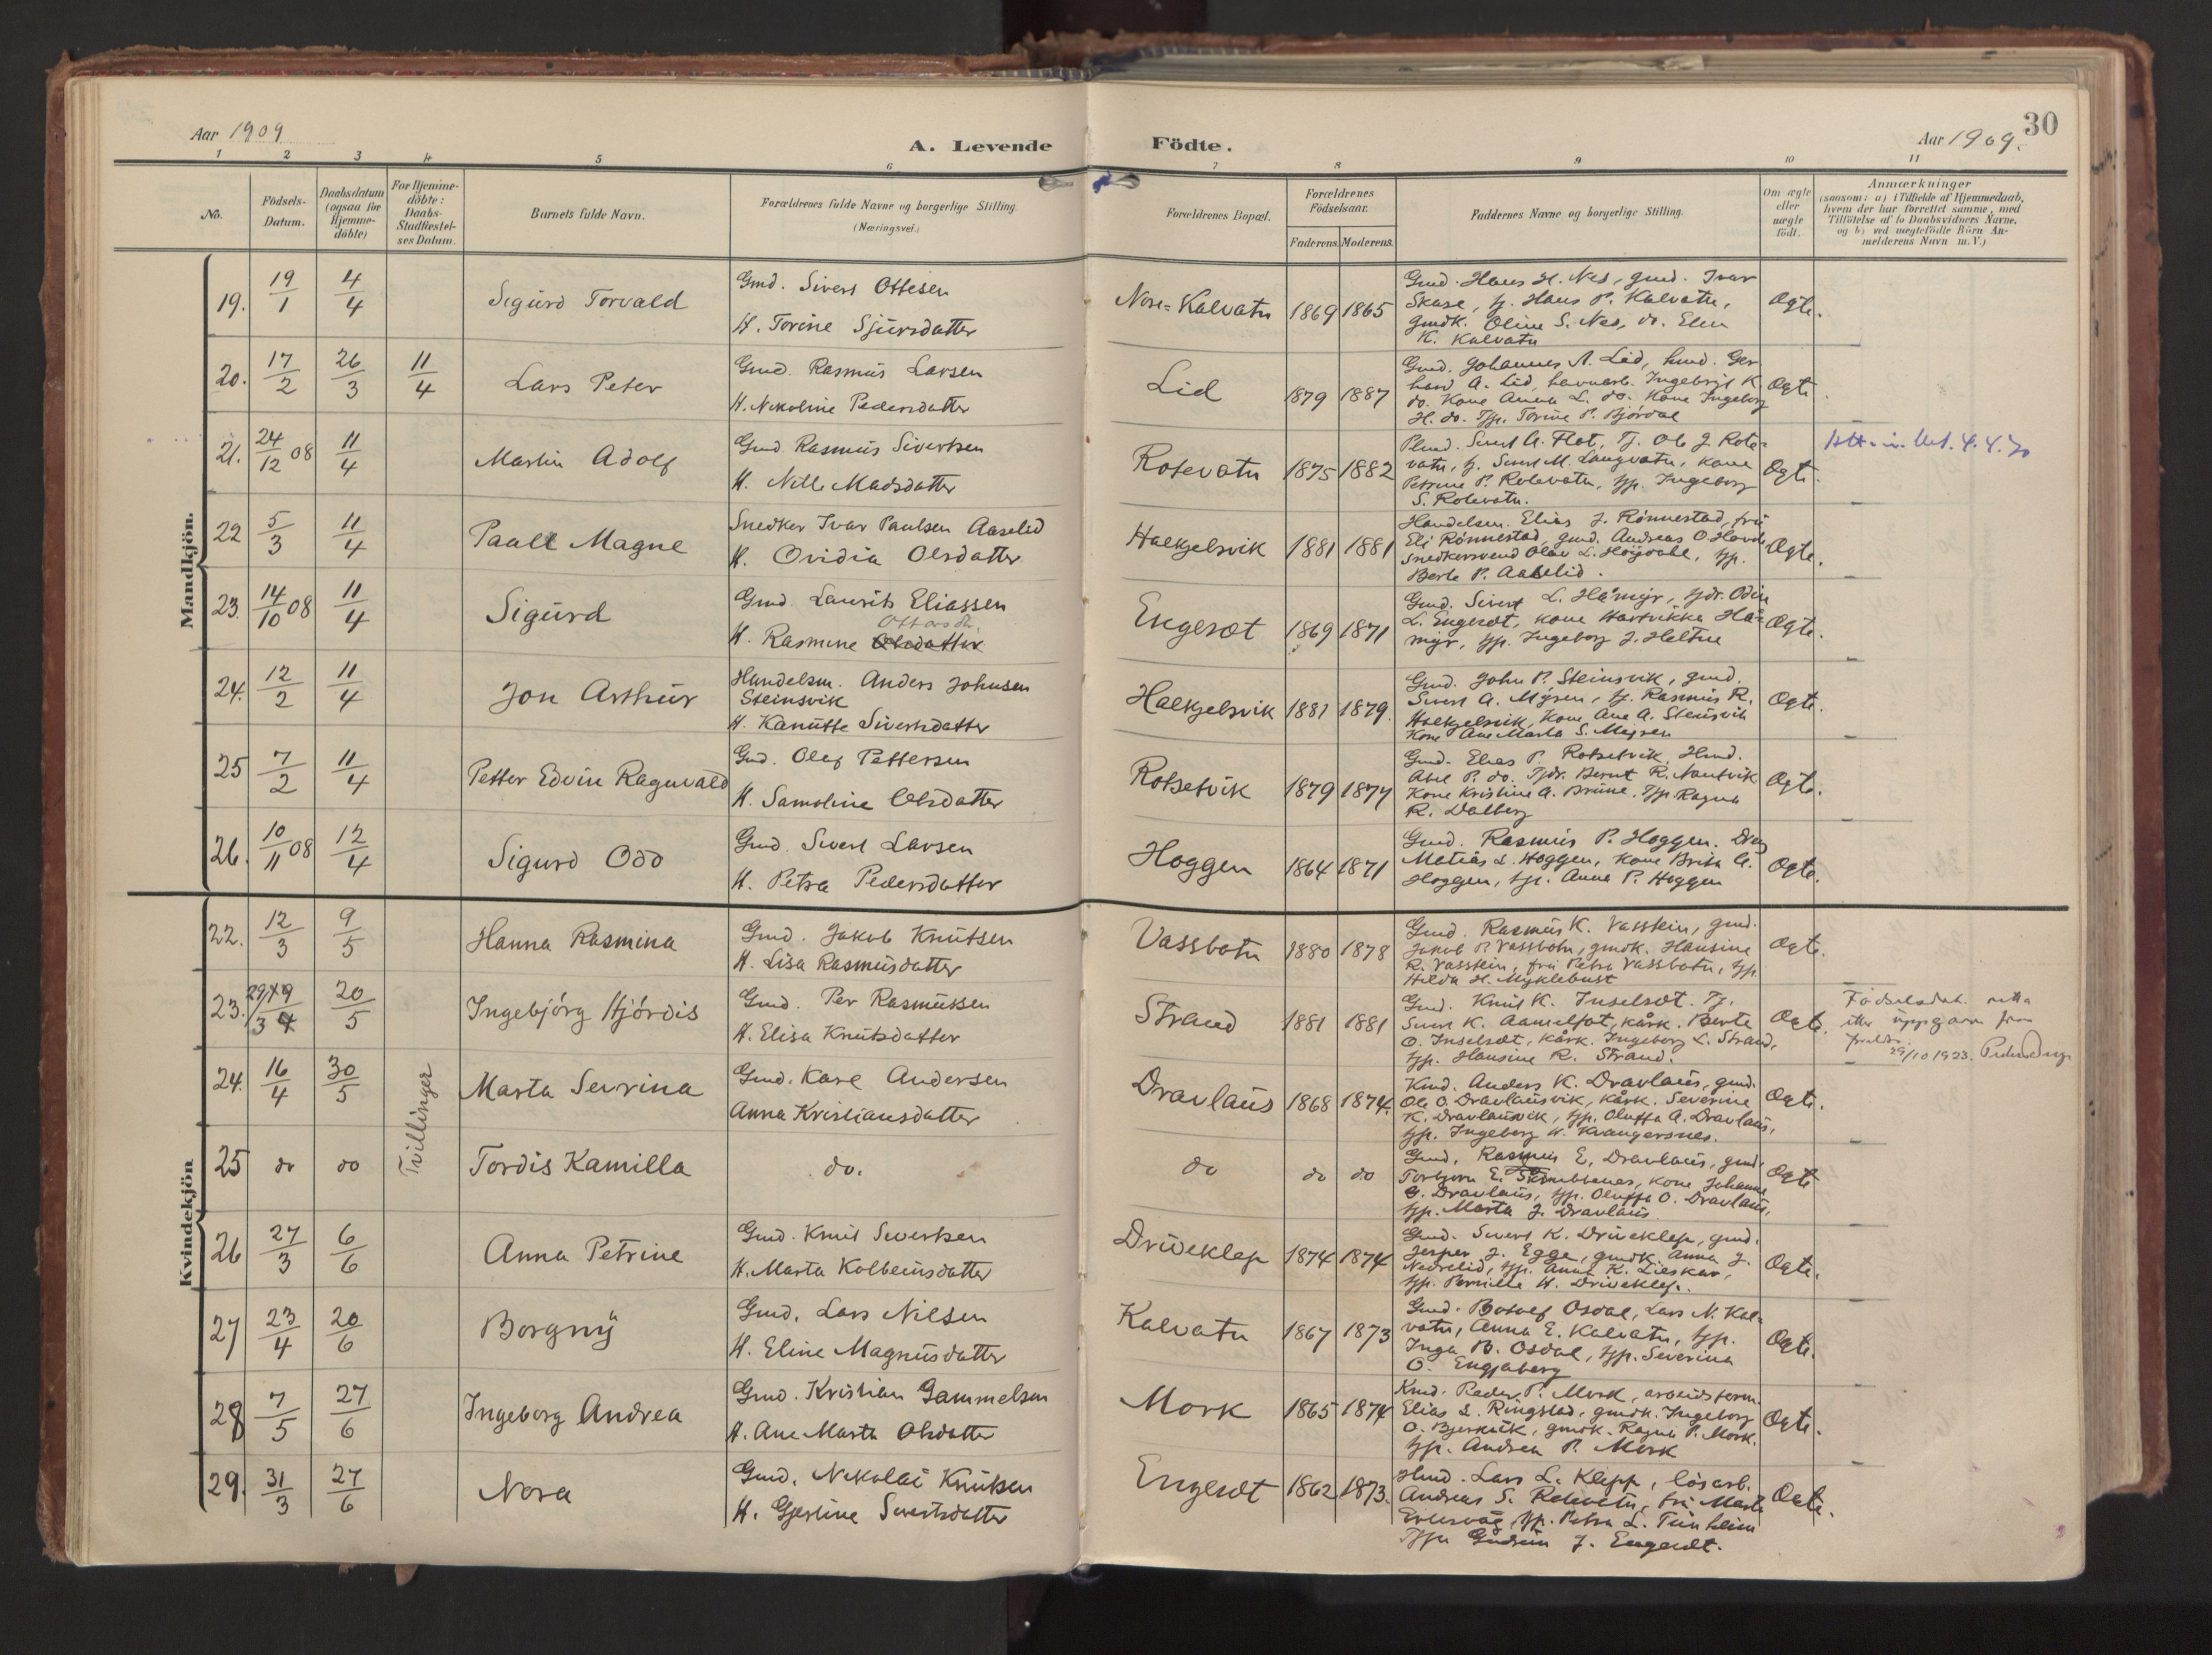 Aar 1909
A. Levende Födte.
Aar 1909.
30
1 2 3 4 5 6 7 8 9 10 11
No.
Födsels-Datum.
Daabsdatum (ogsaa for Hjemme-döbte)
For Hjemme-döbte: Daabs-Stadfæstel-ses Datum.
Barnets fulde Navn.
Forældrenes fulde Navne og borgerlige Stilling (Næringsvei.)
Forældrenes Bopæl.
Forældrenes Födselsaar.
Faderens. Moderens.
Faddernes Navne og borgerlige Stilling.
Om ægte eller uægte födt.
Anmærkninger
(saasom: a) i Tilfælde af Hjemmedaab, hvem der har forrettet samme, med Tilföielse af to Daabsvidners Navne, og b) ved uægtefödte Börn An-melderens Navn m. V.)
Mandkjön.
19. 19/1 4/4 Sigurd Torvald
Gmd. Sivert Ottesen
H. Torine Sjursdatter
Nore-Kalvatn 1869 1865
Gmd. Hans H. Nes, gmd. Ivar
Skare, tj. Hans P. Kalvatn,
gmdk. Oline S. Nes, do. Elen
K. Kalvatn
Ægte.
20. 17/2 26/3 11/4 Lars Peter
Gmd. Rasmus Larsen
H. Nikoline Pedersdatter
Lid 1879 1887
Gmd. Johannes A. Lid, hmd. Ger
hard A. Lid, havnearb. Ingebrigt K
do. Kone Anna L. do. Kone Ingeborg
H. do. Tjp. Torine P. Björdal
Ægte
21. 24/12 08 11/4 Martin Adolf
Gmd Rasmus Sivertsen
H. Nille Madsdatter
Rotevatn 1875 1882
Sivert A. Flot, Tj. Ole J. Rote-
vatn, tj. Sivert M. Langvatn, kone
Petrine P. Rotevatn, tjp. Ingeborg
S. Rotevatn.
Ægte
4.4.70
22 5/3 11/4 Paall Magne
Snedker Ivar Paulsen Aaselid
H. Ovidia Olsdatter
Halkjelsvik 1881 1881
Handelsm. Elias J. Rönnestad, frü
Eli Rönnestad, gmd. Andreas O. Hovde
snedkersvend Olav L. Höydahl, tjp.
Berte P. Aaselid.
Ægte.
23. 14/10 08 11/4 Sigurd
Gmd. Laurits Eliassen
Ottarsdtr.
H. Rasmine Olsdatter
Engeset 1869 1871
Gmd. Sivert L. Håmyr, tjdr. Odin
L. Engeset, kone Hartvikka Hå-
myr, tjp. Ingeborg J. Heltne
Ægte.
24. 12/2 11/4 Jon Arthur
Handelsm. Anders Johnsen
Steinsvik
H. Kanutte Sivertsdatter
Halkjelsvik 1881 1879.
Gmd. John P. Steinsvik, gmd.
Sivert A. Myren, tj. Rasmus R.
Halkjelsvik, Kone Ane A. Steinsvik
Kone Ane Marta S. Myren
Ægte.
25 7/2 11/4 Petter Edvin Ragnvald
Gmd. Olef Pettersen
H. Samoline Olsdatter
Rotsetvik 1879 1874
Gmd. Elias P. Rotsetvik, Hmd.
Abel P. do. Tjdr. Bernt R. Nautvik
Kone Kristine A. Brune. Tjp. Ragna
R. Dalberg
Ægte.
26. 10/11 08 12/4 Sigurd Odd
Gmd. Sivert Larsen
H. Petra Pedersdatter
Hoggen 1864 1871
Gmd. Rasmus P. Hoggen. Dreng
Matias L. Hoggen, kone Brita A.
Hoggen, tjp. Anna P. Hoggen
Ægte.
Kvindekjön
22. 12/3 9/5 Hanna Rasmina
Gmd. Jakob Knutsen
H. Lisa Rasmusdatter
Vassbotn 1880 1878
Gmd. Rasmus K. Vasstein, gmd.
Jakob P. Vassbotn, gmdk. Hansine
R. Vasstein, frü Petra Vassbotn, tjp.
Hilda H. Myklebust
Ægte.
23. 29/3 20/5 Ingebjörg Hjördis
Gmd. Per Rasmussen
H. Elisa Knutsdatter
Strand 1881 1881
Gmd. Knut K. Inselset. Tj.
Sivert K. Aamelfot, kårk. Berte
O. Inselset, kårk. Ingeborg L. Strand,
tjp. Hansine R. Strand.
Ægte.
Födselsdat. retta
etter uppgave fra
29/10 1923.
24. 16/4 30/5 Marta Sevrina
Tvillinger
Gmd. Karl Andersen
Anna Kristiansdatter
Dravlaus 1868 1874.
Kmd. Anders K. Dravlaus, gmd.
Ole O. Dravlausvik, kårk. Severine
K. Dravlausvik, tjp. Oluffa A. Dravlaus,
tjp. Ingeborg H. Kvangersnes.
Ægte.
25 do do Tordis Kamilla
do.
do do do
Gmd. Rasmus E. Dravlaus, gmd.
Torbjörn E. kone Johanne
G. Dravlaus, tjp. Oluffa O. Dravlaus,
tjp. Marta J. Dravlaus
Ægte
26 27/3 6/6 Anna Petrine
Gmd. Knut Sivertsen
H. Marta Kolbeinsdatter
Driveklep 1874 1874
Gmd. Sivert K. Driveklep, gmd.
Jesper J. Egge, gmdk. Anna J.
Nedrelid, tjp. Anna K. Lieskar,
tjp. Pernille H. Driveklep.
Ægte.
27 23/4 20/6 Borgny
Gmd. Lars Nilsen
H. Eline Magnusdatter
Kalvatn 1867 1873
Gmd. Botolf Osdal, Lars N. Kal-
vatn, Anna E. Kalvatn, tjp.
Inga B. Osdal, tjp. Severina
O. Engjaberg
Ægte.
28 7/5 27/6 Ingeborg Andrea
Gmd. Kristian Gammelsen
H. Ane Marta Olsdatter
Mork 1865 1874
Kmd. Peder P. Mork, arbeidsform.
Elias L. Ringstad, gmdk. Ingeborg
O. Bjerkvik, gmdk. Ragna P. Mork.
tjp. Andrea P. Mork
Ægte.
29. 31/3 27/6 Nora
Gmd. Nikolai Knutsen
H. Gjertine Sivertsdatter
Engeset 1862 1873.
Hmd. Lars L. Klepp, lösarb.
Andreas S. Rotevatn, frü Marta
tjp. Petra L. Tunheim
Tjp. Gudrun J. Engeset.
Ægte.